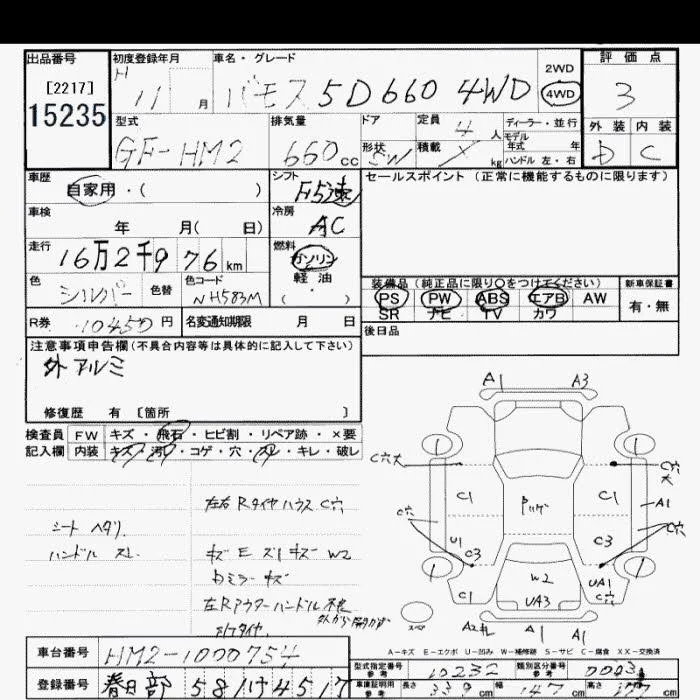 出品番号
[2217]
15235
初度登録年月
H 11 月
車名・グレード
バモス 5D 660 4WD
2WD
4WD
評価点
3
外装 内装
D C
型式
GF-HM2
排気量
660 cc
ドア
形状
5W
定員 4 人
積載 kg
ディーラー・並行
モデル
年式 年
ハンドル 左・右
車歴
自家用・( )
シフト
F5速
車検
年 月( 日)
冷房
AC
走行
16万2千976 km
燃料
ガソリン
軽油
( ・ )
色
シルバー
色替
色コード
NH583M
R券
10450 円
名変通知期限 月 日
セールスポイント (正常に機能するものに限ります)
装備品 (純正品に限り○をつけてください)
PS PW ABS エアB AW
SR ナビ TV カワ
新車保証書
有・無
後日品
注意事項申告欄 (不具合内容等は具体的に記入して下さい)
外アルミ
修復歴 有 [箇所 ]
検査員
記入欄
FW キズ・飛石・ヒビ割・リペア跡・×要
内装 キズ・汚れ・コゲ・穴・スレ・キレ・破レ
左右Rタイヤハウス C穴
シート ヘタリ
ハンドル スレ
キズ E ズリキズ W2
Dミラーキズ
左Rアウターハンドル不良
外から開かず
A1 A3
1 1
C穴大 C穴大
C1 C1
A1
C穴 C穴
U1 C3
C3
1 1
W2
UA1
C1 UA3 C穴
スペア
A1 A1
A-キズ E-エクボ U-凹み W-補修跡 S-サビ C-腐食 XX-交換済
車台番号
HM2-1000754
登録番号
春日部 58 け 4517
型式指定番号
参考
10232
類別区分番号
参考
0003
車庫証明用
参考
長さ 339 cm
幅 147 cm
高さ cm